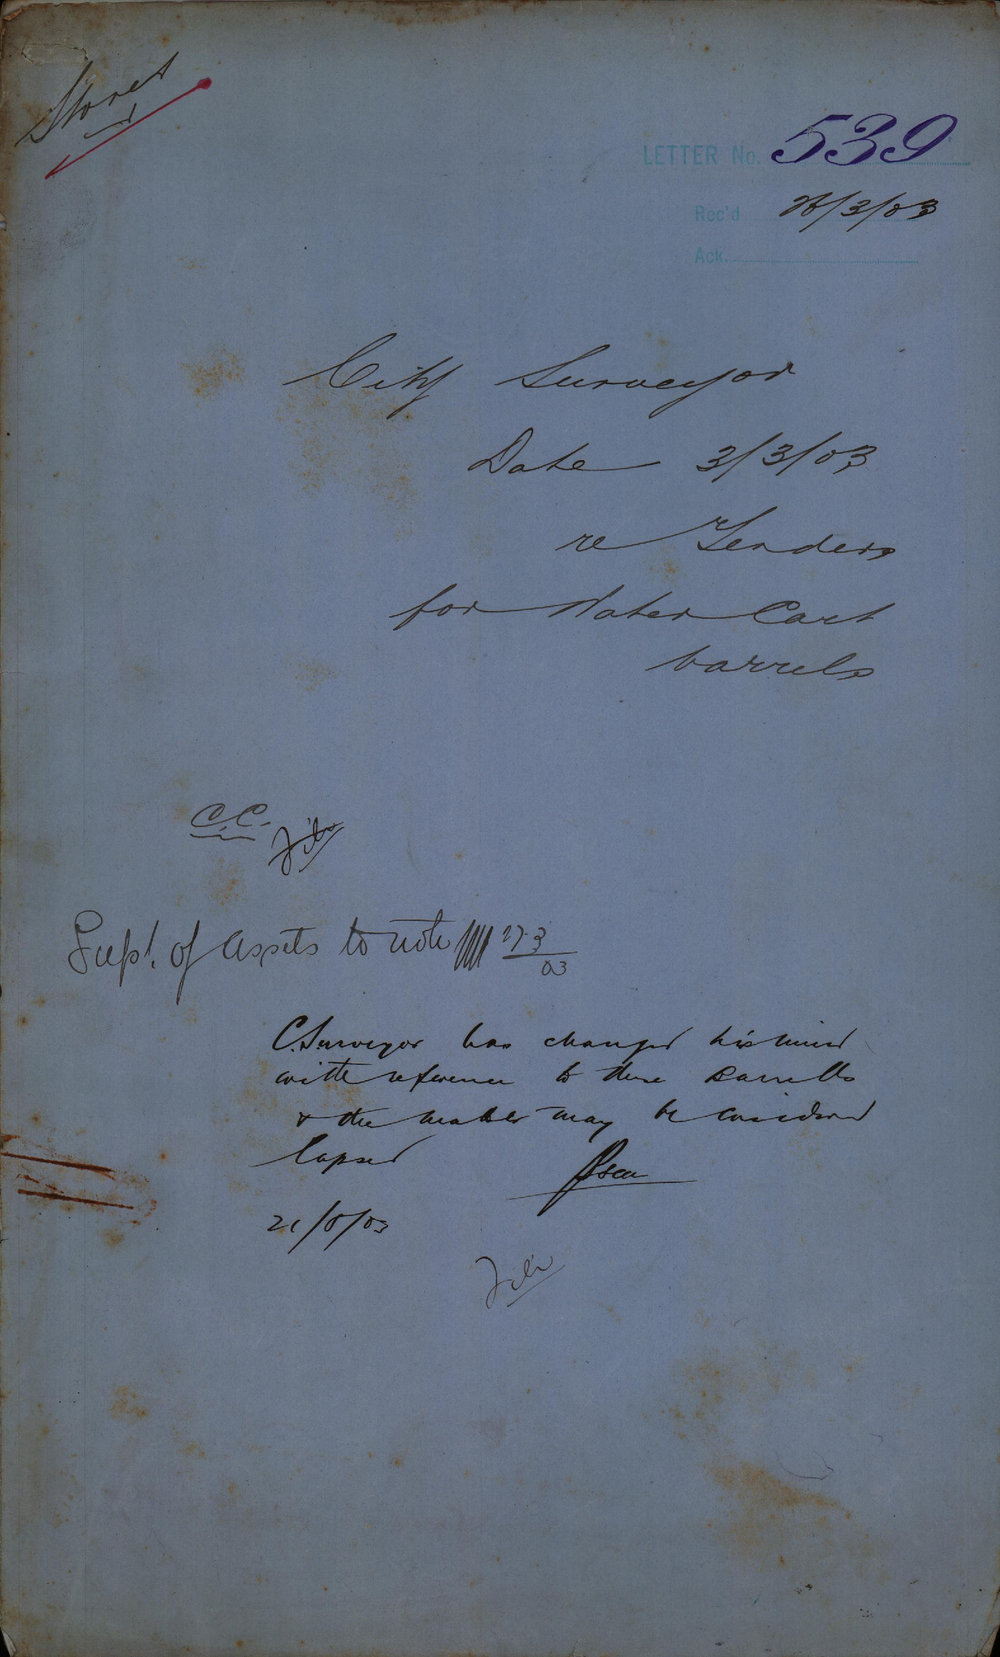 Stores
LETTER No. 539
Rec'd 26/3/03
Ack.
City Surveyor
Date 3/3/03
re Tenders
for Water Cart
barrels
C.C.
File
Supt. of Assets to note 27.3
03
C. Surveyor has changed his mind
with reference to these Barrells
& the matter may be considered
lapsed
21/8/03
File